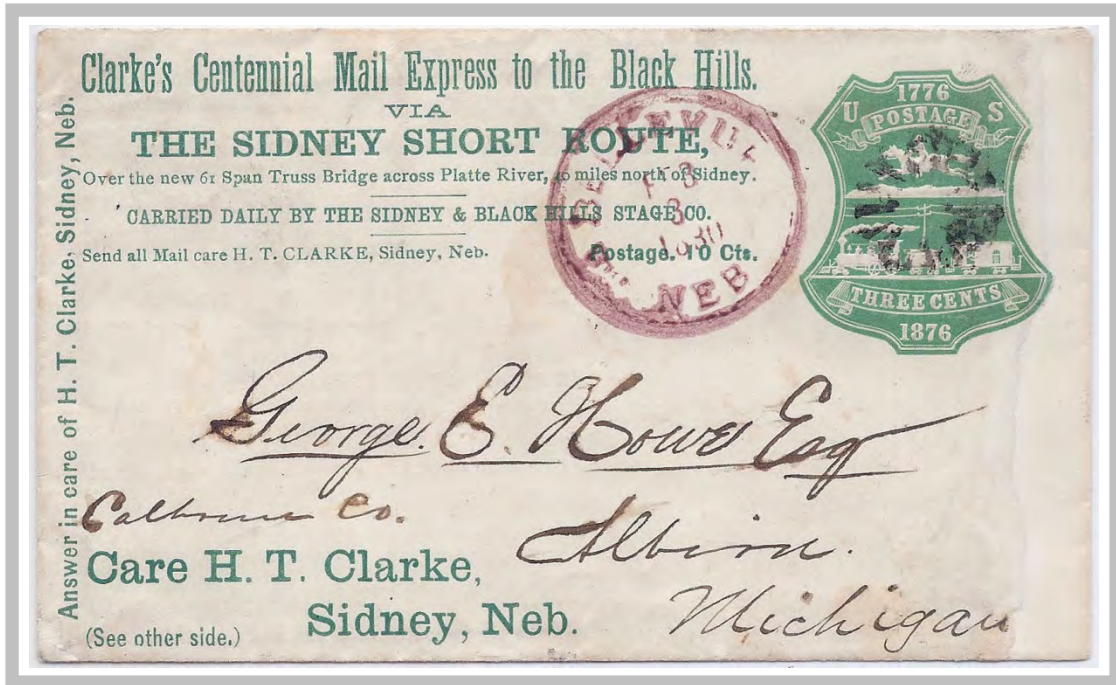 Clarke's Centennial Mail Express to the Black Hills.
VIA
THE SIDNEY SHORT ROUTE,
Over the new 61 Span Truss Bridge across Platte River, 40 miles north of Sidney.
CARRIED DAILY BY THE SIDNEY & BLACK HILLS STAGE CO.
Send all Mail care H. T. CLARKE, Sidney, Neb. Postage. 10 Cts.
Answer in care of H. T. Clarke, Sidney, Neb.
3
1880
NEB
1776
U POSTAGE S
THREE CENTS
1876
George. E. Howe Esq
Calhoun Co.
Albion.
Michigan
Care H. T. Clarke,
Sidney, Neb.
(See other side.)